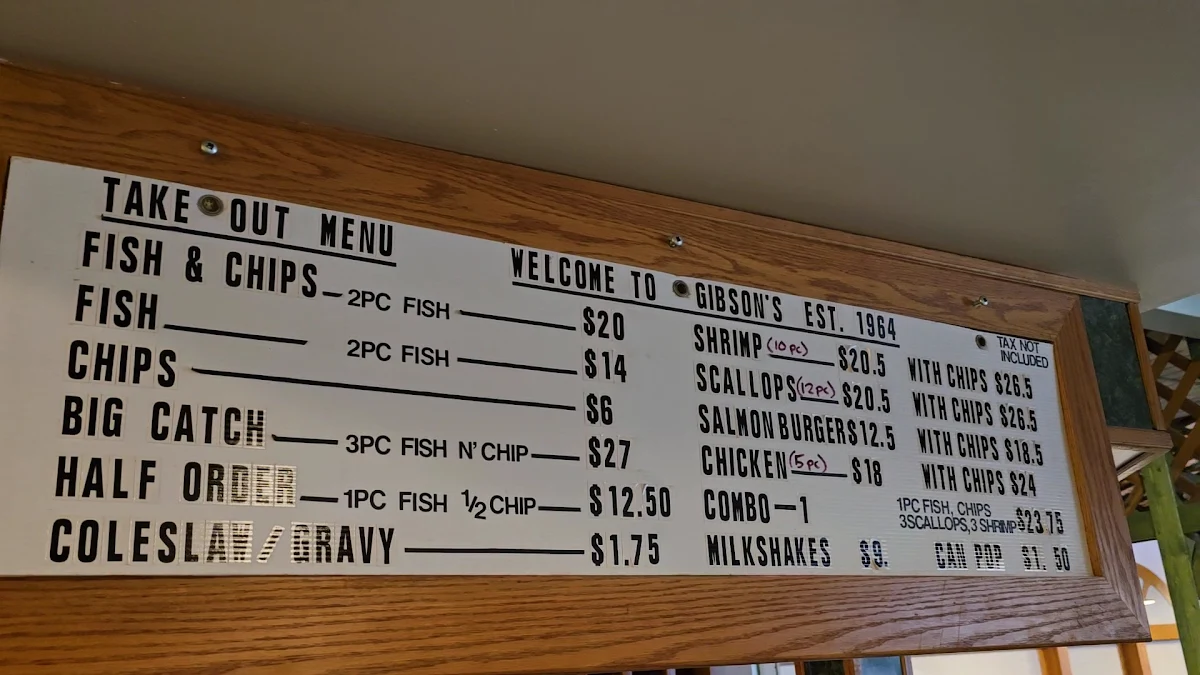 TAKE OUT MENU
FISH & CHIPS 2PC FISH $20
FISH 2PC FISH $14
CHIPS $6
BIG CATCH 3PC FISH N' CHIP $27
HALF ORDER 1PC FISH 1/2 CHIP $12.50
COLESLAW/GRAVY $1.75
WELCOME TO GIBSON'S EST. 1964
TAX NOT
INCLUDED
SHRIMP (10 pc) $20.5 WITH CHIPS $26.5
SCALLOPS (12pc) $20.5 WITH CHIPS $26.5
SALMON BURGER $12.5 WITH CHIPS $18.5
CHICKEN (5pc) $18 WITH CHIPS $24
COMBO-1 1PC FISH, CHIPS
3SCALLOPS, 3 SHRIMP $23.75
MILKSHAKES $9. CAN POP $1.50